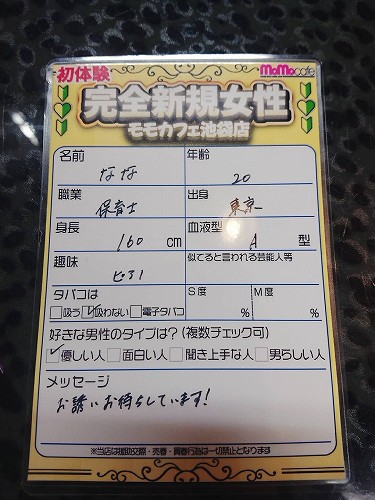 初体験
MoMocafe
完全新規女性
モモカフェ池袋店
名前 なな
年齢 20
職業 保育士
出身 東京
身長 160 cm
血液型 A 型
趣味 ピアノ
似てると言われる芸能人等
タバコは
□吸う ☑吸わない □電子タバコ
S度 %
M度 %
好きな男性のタイプは?(複数チェック可)
☑優しい人 □面白い人 □聞き上手な人 □男らしい人
メッセージ
お誘いお待ちしています!
※当店は援助交際・売春・買春行為は一切禁止となります